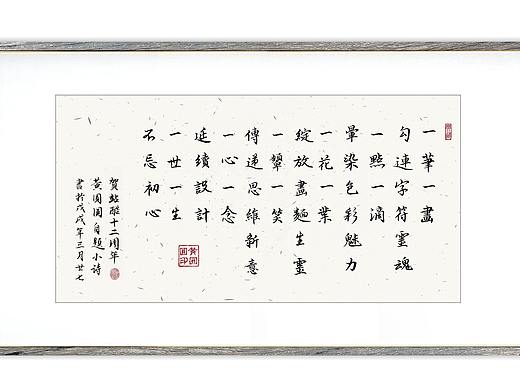 一筆一畫
勾連字符靈魂
一點一滴
暈染色彩魅力
一花一葉
綻放畫麵生靈
一顰一笑
傳遞思維新意
一心一念
延續設計
一世一生
不忘初心
賀站酷十二周年
黃圓圓自題小詩
書於戊戌年三月廿七